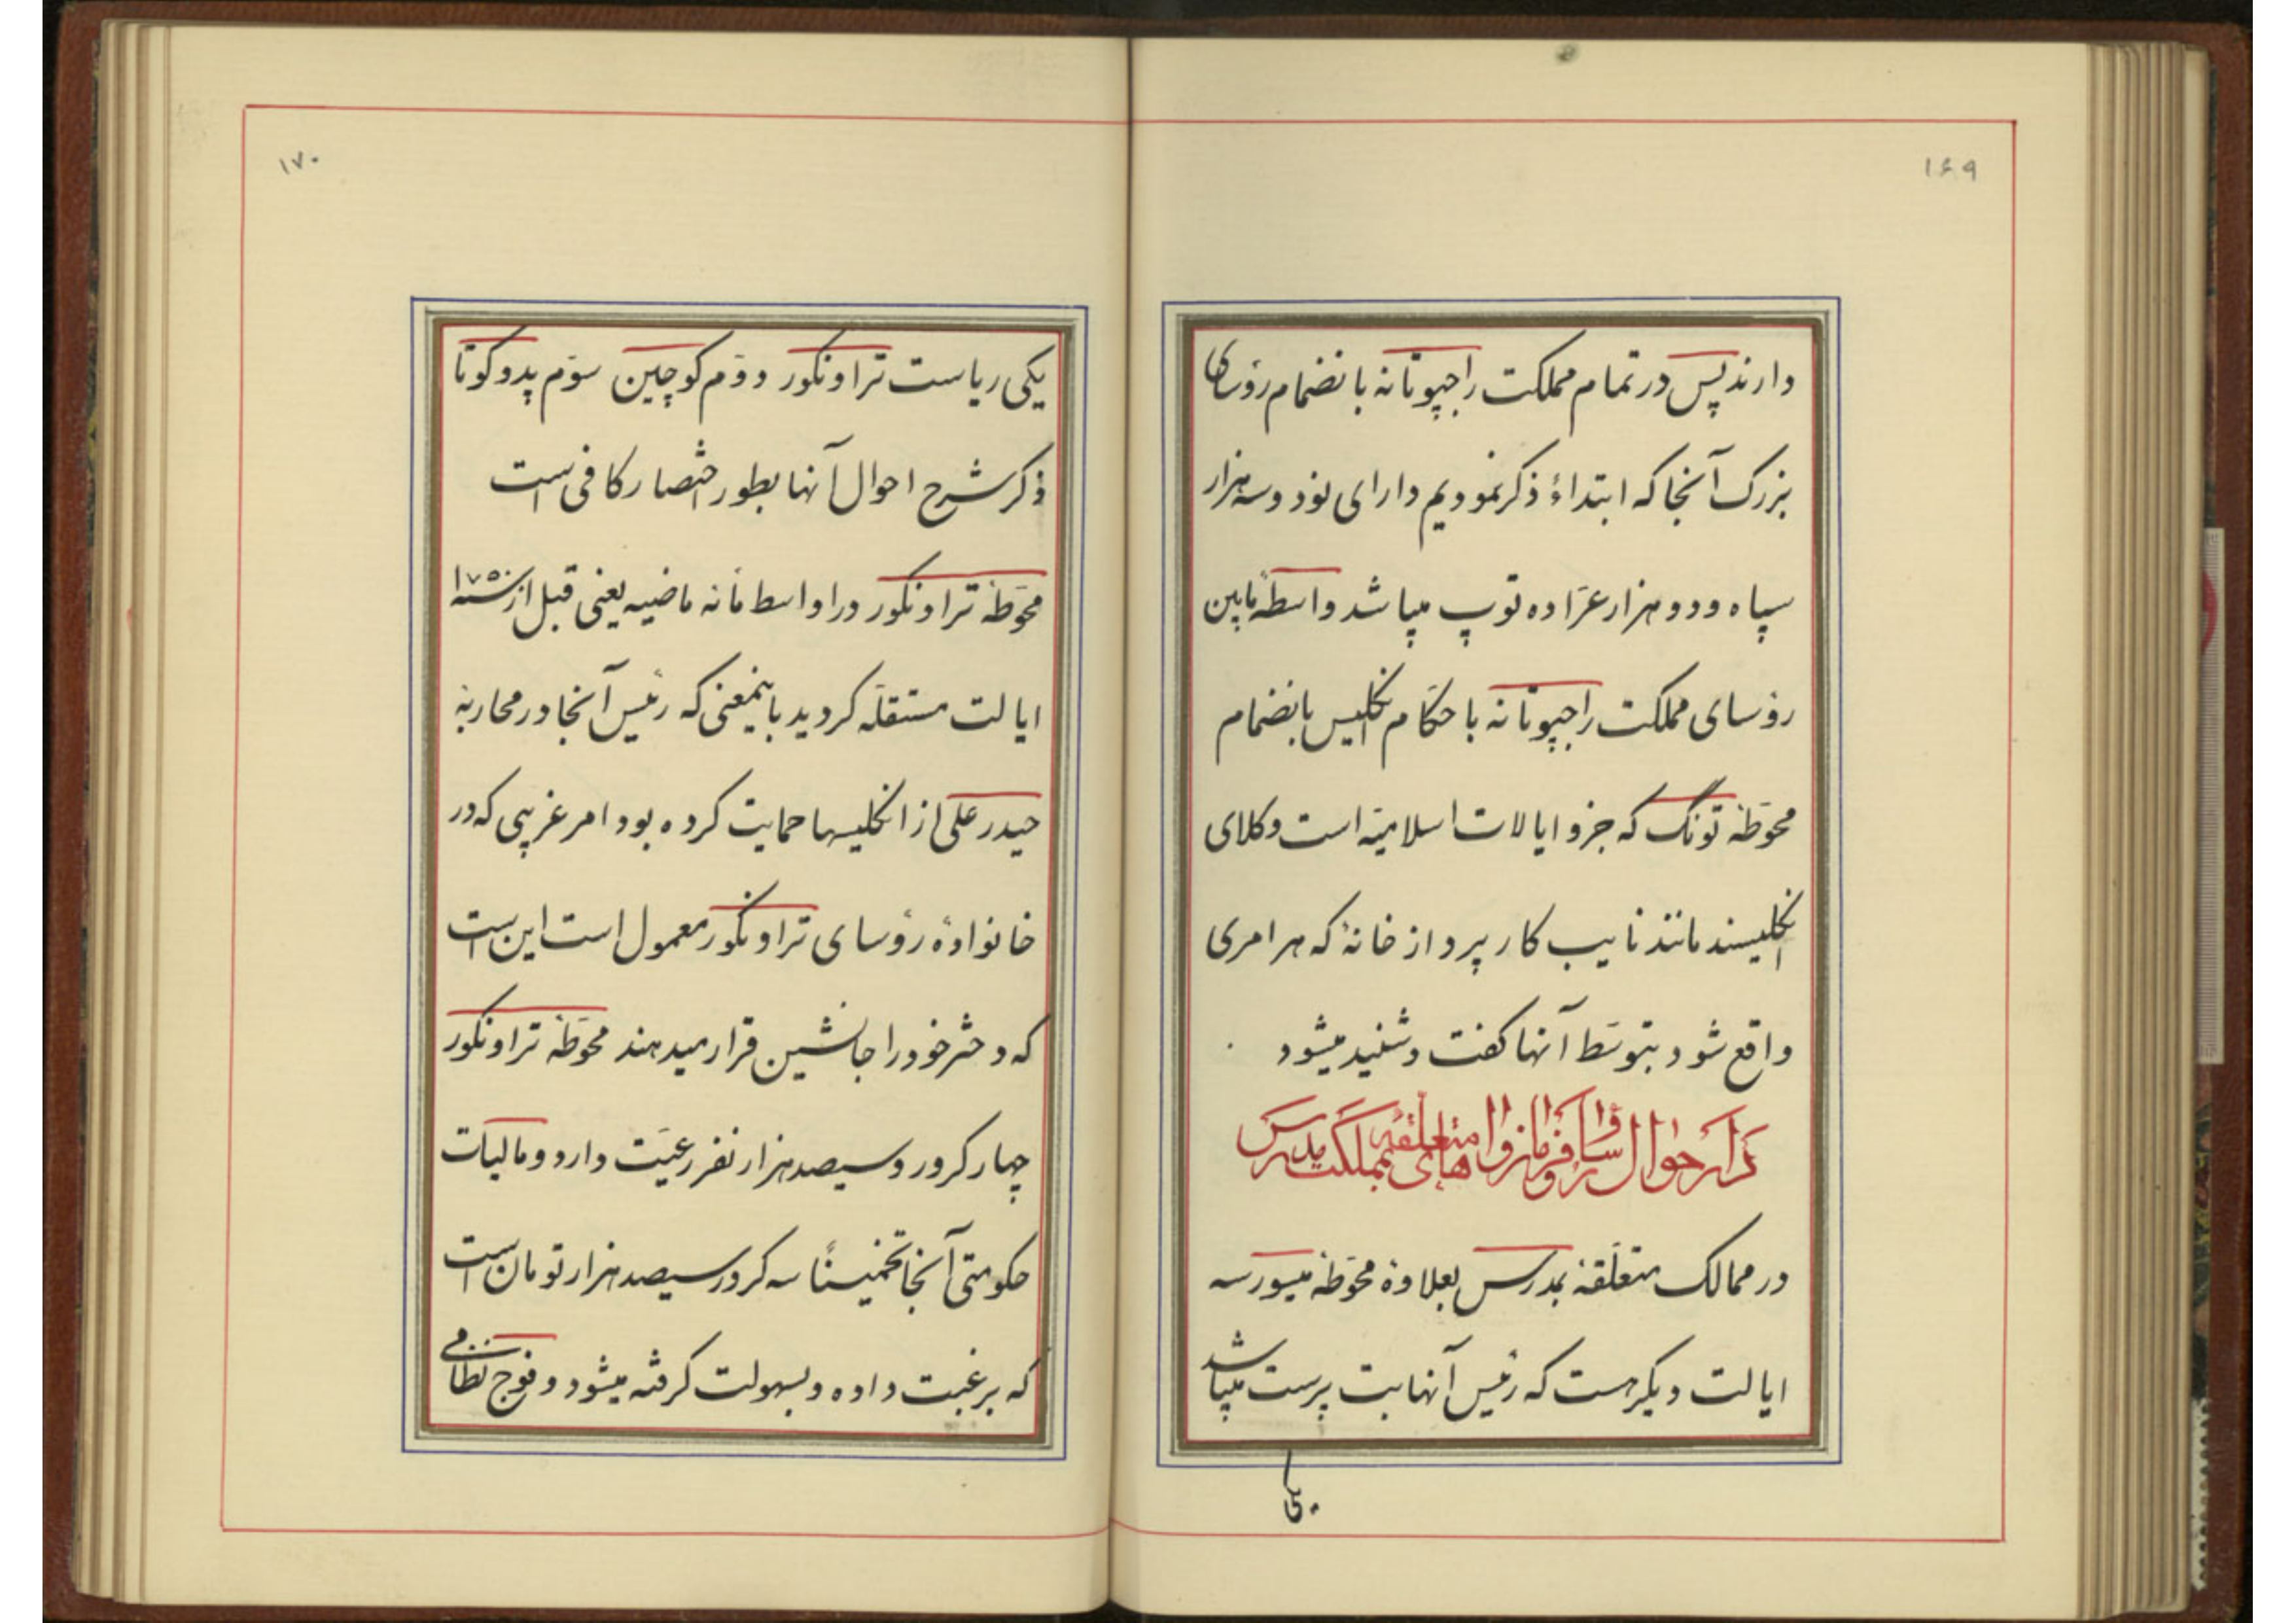 ۱۶۹
دارند پس در تمام مملکت راجپوتانه بانضمام رؤسای
بزرک آنجا که ابتداءً ذکر نمودیم دارای نود و سه هزار
سپاه و دو هزار عرّاده توپ میباشد واسطهٔ مابین
رؤسای مملکت راجپوتانه با حکّام انکلیس بانضمام
محوّطهٔ تونک که جزو ایالات اسلامیّه است وکلای
انکلیسند مانند نایب کارپردازخانهٔ که هر امری
واقع شود بتوسّط آنها کفت و شنید میشود
ذکر احوال رؤسا و فرمانروا های متعلّقه بمملکت مدرس
در ممالک متعلّقهٔ بمدرس بعلاوهٔ محوّطهٔ میسور سه
ایالت دیکر هست که رئیس آنها بت پرست میباشد
یکی
۱۷۰
یکی ریاست تراونکور دوّم کوچین سوّم پدوکوتا
ذکر شرح احوال آنها بطور اختصار کافی است
محوّطهٔ تراونکور در اواسط مأنه ماضیه یعنی قبل از سنه ۱۷۵۰
ایالت مستقلّه کردید باینمعنی که رئیس آنجا در محاربهٔ
حیدر علی از انکلیسها حمایت کرده بود امر غریبی که در
خانوادهٔ رؤسای تراونکور معمول است این است
که دختر خود را جانشین قرار میدهند محوّطهٔ تراونکور
چهار کرور و سیصد هزار نفر رعیّت دارد و مالیات
حکومتی آنجا تخمیناً سه کرور سیصد هزار تومان است
که برغبت داده و بسهولت کرفته میشود و فوج نظامی